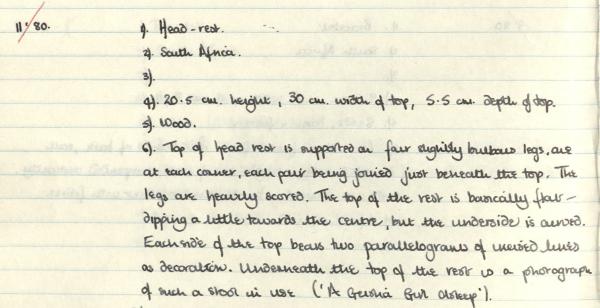 11'80.
1). Head-rest.
2). South Africa.
3).
4). 20.5 cm. height, 30 cm. width of top, 5.5 cm. depth of top.
5). Wood.
6). Top of head rest is supported on four slightly bulbous legs, one
at each corner, each pair being joined just beneath the top. The
legs are heavily scored. The top of the rest is basically flat –
dipping a little towards the centre, but the underside is curved.
Each side of the top bears two parallelograms of incised lines
as decoration. Underneath the top of the rest is a photograph
of such a stool in use ('A Geisha Girl Asleep').